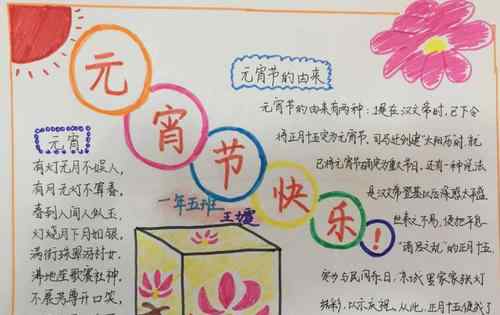 元宵节快乐!
一年五班
王
元宵节的由来
元宵节的由来有两种:1是在汉文帝时,已下令
将正月十五定为元宵节。司马迁创建"太阳历"时,就
已将元宵节确定为重大节日。还有一种说法
是汉文帝登基以后深感太平盛
世来之不易,便把平息
"诸吕之乱"的正月十五
定为与民同乐日,京城里家家张灯
结彩,以示庆祝。从此,正月十五便成了
元宵
有灯无月不娱人,
有月无灯不算春。
春到人间人似玉,
灯烧月下月如银。
满街珠翠游村女,
沸地笙歌赛社神。
不展芳尊开口笑,